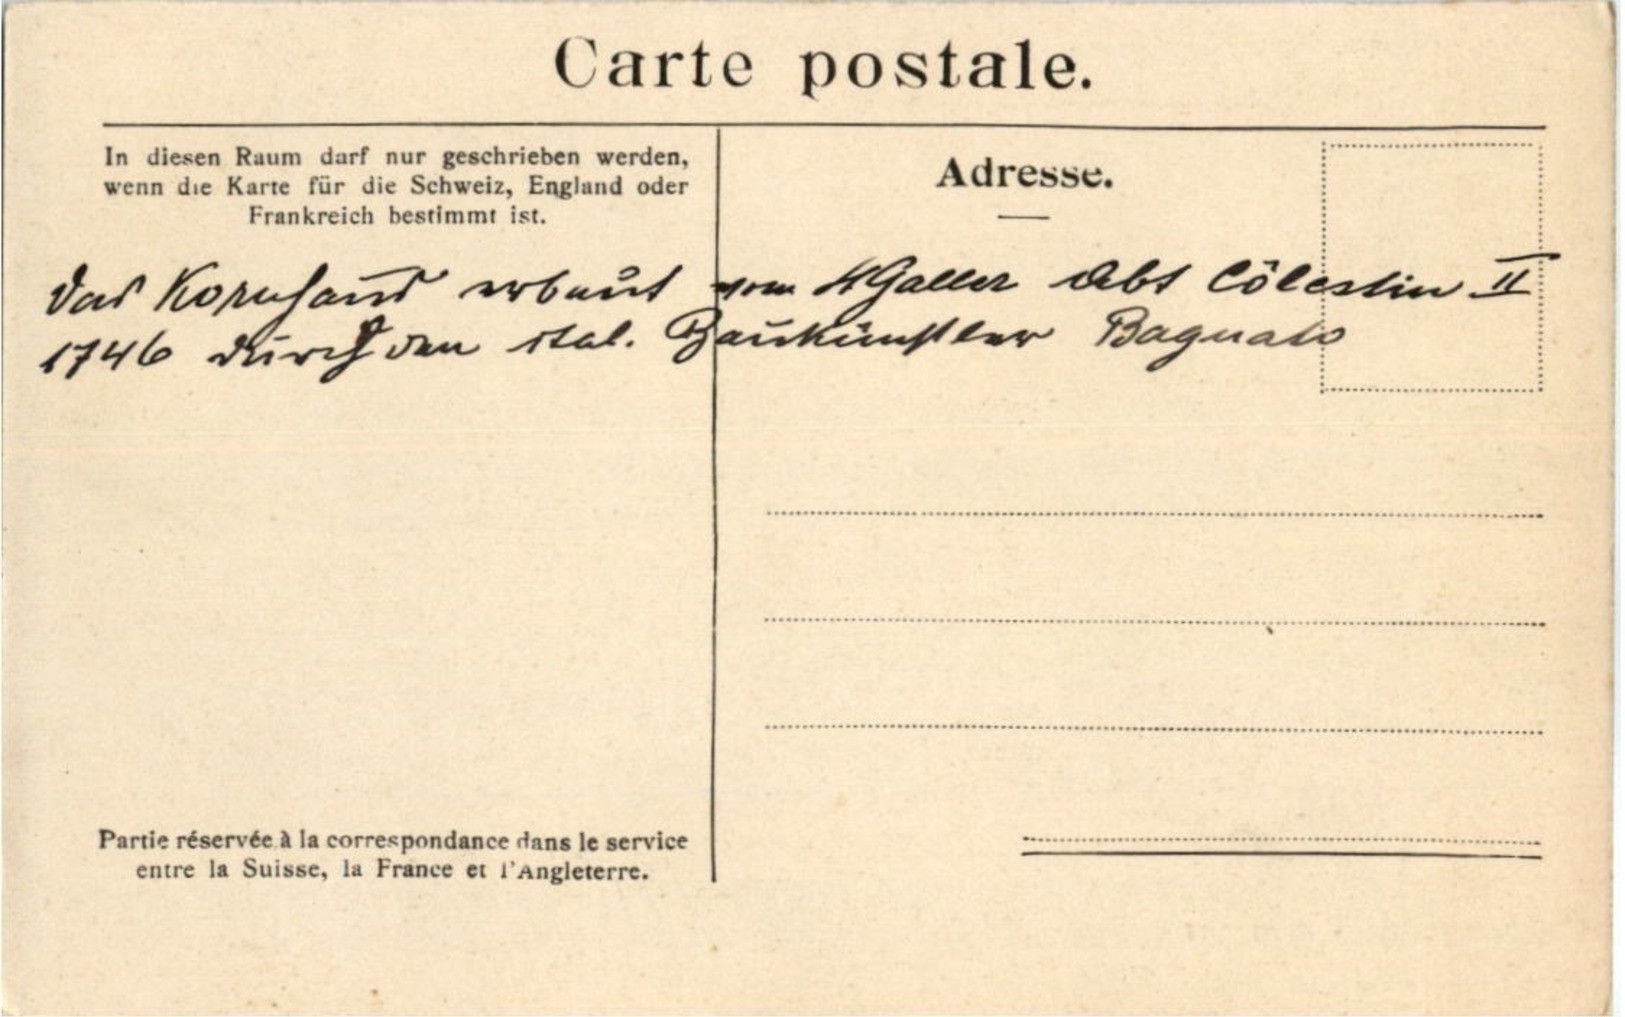 Carte postale.
In diesen Raum darf nur geschrieben werden,
wenn die Karte für die Schweiz, England oder
Frankreich bestimmt ist.
Adresse.
Das Kornhaus erbaut vom St Galler Abt Cölestin II
1746 durch den ital. Baukünstler Bagnato
Partie réservée à la correspondance dans le service
entre la Suisse, la France et l'Angleterre.